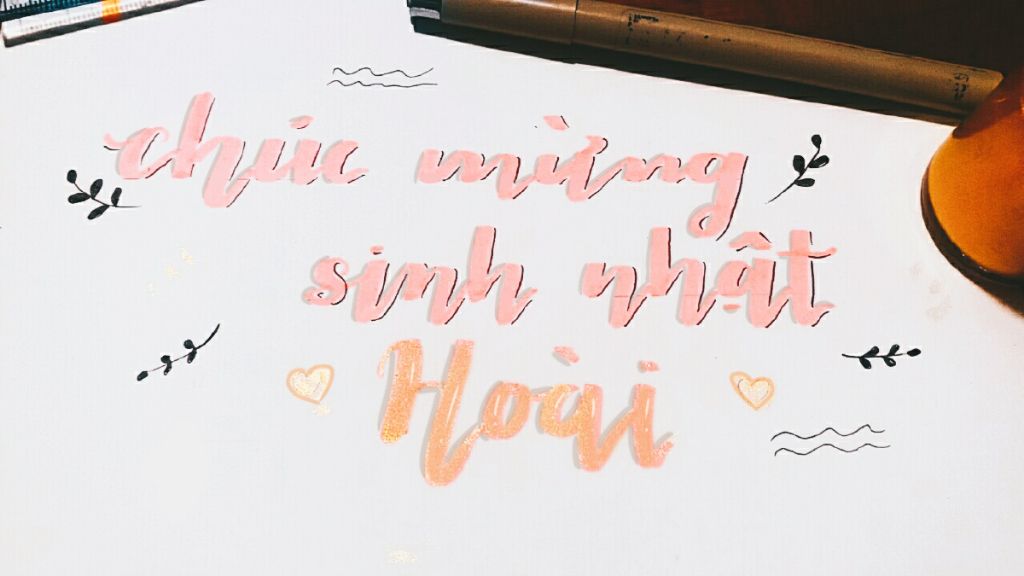 chúc mừng
sinh nhật
Hoài